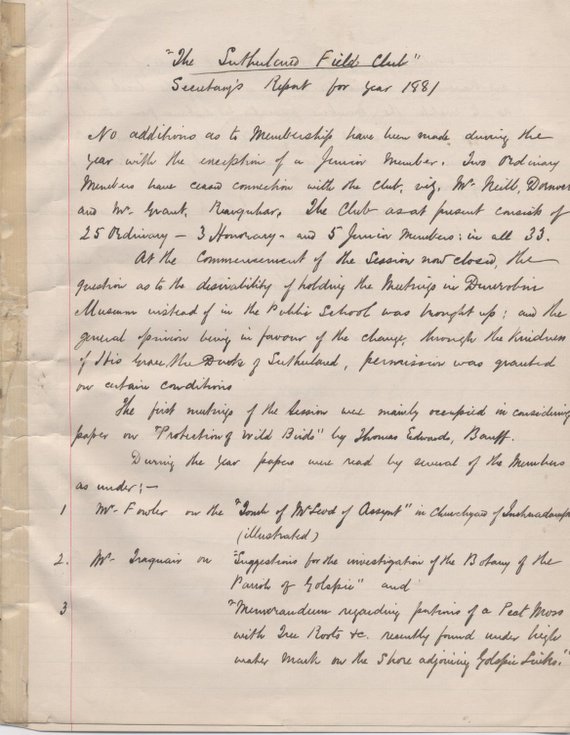 "The Sutherland Field Club"
Secretary's Report for year 1881
No additions as to Membership have been made during the
year with the exception of a Junior Member. Two Ordinary
Members have ceased connection with the Club, viz, Mr. Neill, Dornoch
and Mr. Grant, The Club as at present consists of
25 Ordinary - 3 Honorary - and 5 Junior Members: in all 33.
At the Commencement of the Session now closed, the
question as to the desirability of holding the Meetings in Dunrobin
Museum instead of in the Public School was brought up; and the
general opinion being in favour of the change, through the kindness
of His Grace, the Duke of Sutherland, permission was granted
on certain conditions
The first meetings of the Session were mainly occupied in considering
paper on "Protection of Wild Birds" by Thomas Edwards, Banff.
During the year papers were read by several of the Members
as under:—
1 Mr. Fowler on the "Tomb of McLeod of Assynt" in Churchyard of
(illustrated)
2. Mr. Traquair on "Suggestions for the investigation of the Botany of the
Parish of Golspie" and
3 "Memorandum regarding portions of a Peat Moss
with Tree Roots &c. recently found under high
water mark on the Shore adjoining Golspie Links."